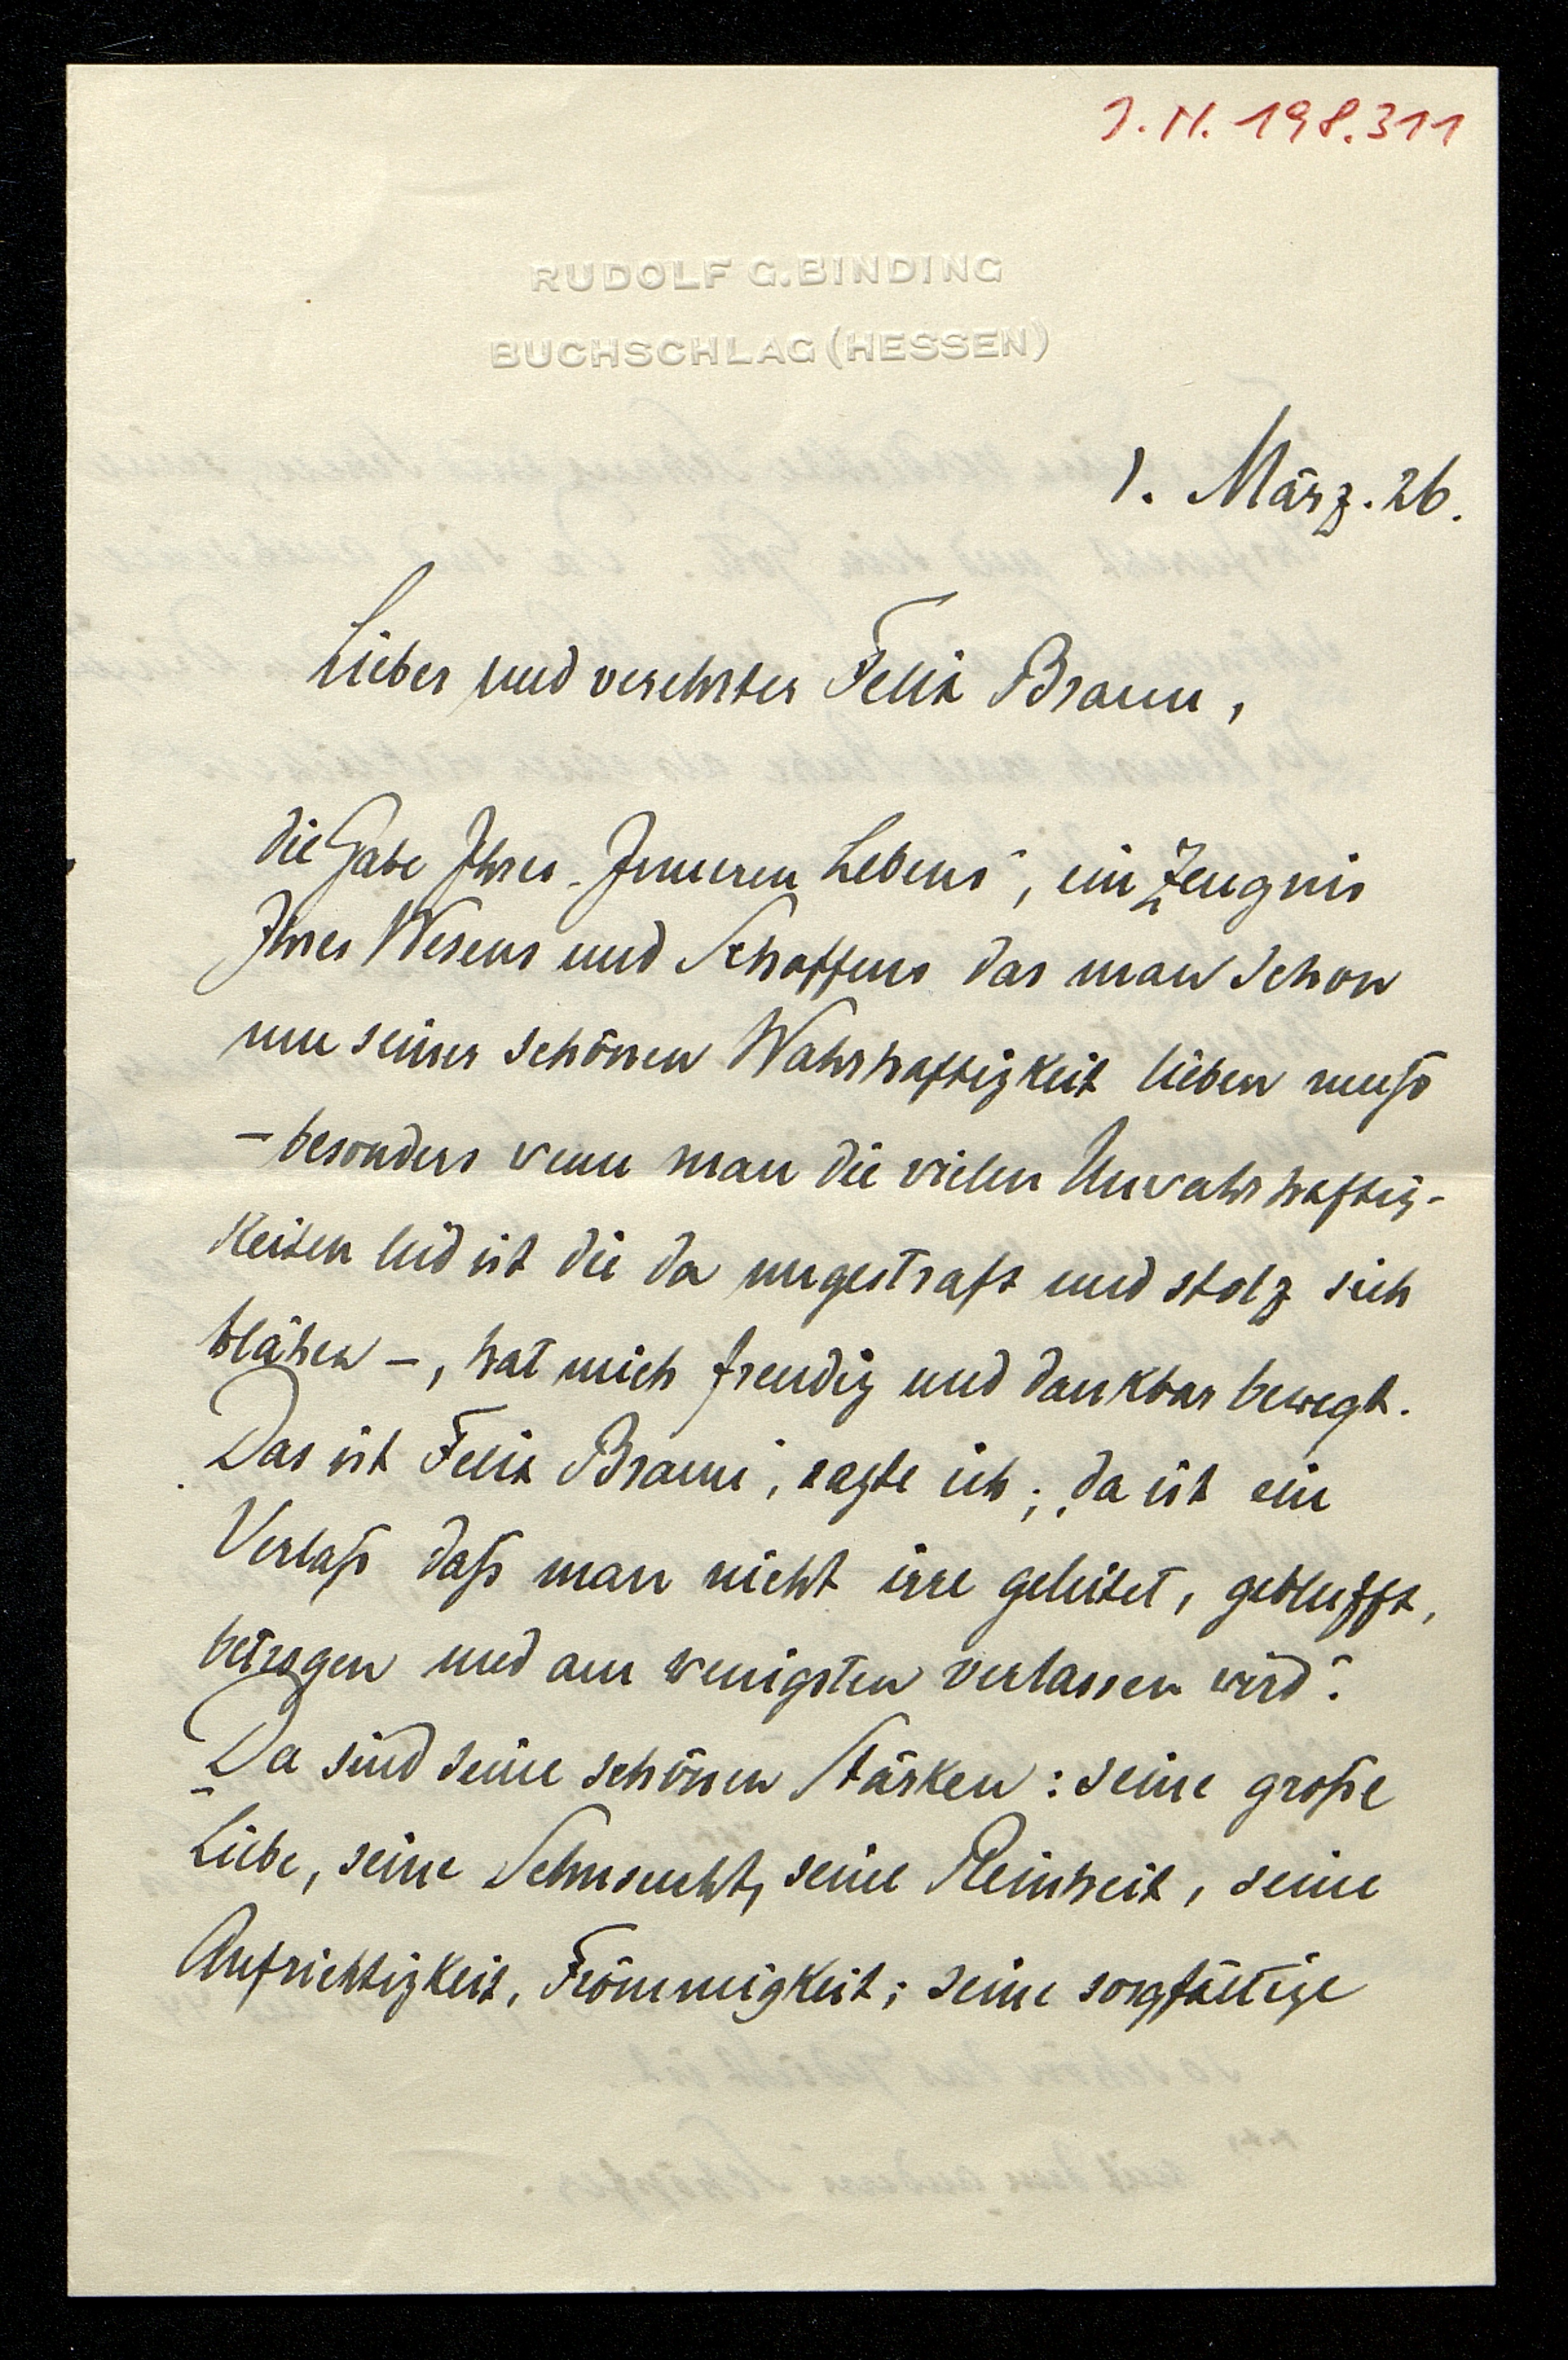 J. N. 198.311
RUDOLF G. BINDING
BUCHSCHLAG (HESSEN)
1. März. 26.
Lieber und verehrter Felix Braun,
die Gabe Ihres „Inneren Lebens“, ein Zeugnis
Ihres Wesens und Schaffens das man schon
um seiner schönen Wahrhaftigkeit lieben muß
– besonders wenn man die vielen Unwahrhaftig-
keiten leid ist die da ungestraft und stolz sich
blähen –, hat mich freudig und dankbar bewegt.
„Das ist Felix Braun“, sagte ich; „da ist ein
Verlaß daß man nicht irre geleitet, geblufft,
betrogen und am wenigsten verlassen wird“.
Da sind seine schönen Stärken: seine große
Liebe, seine Sehnsucht, seine Reinheit, seine
Aufrichtigkeit, Frömmigkeit; seine sorgfältige